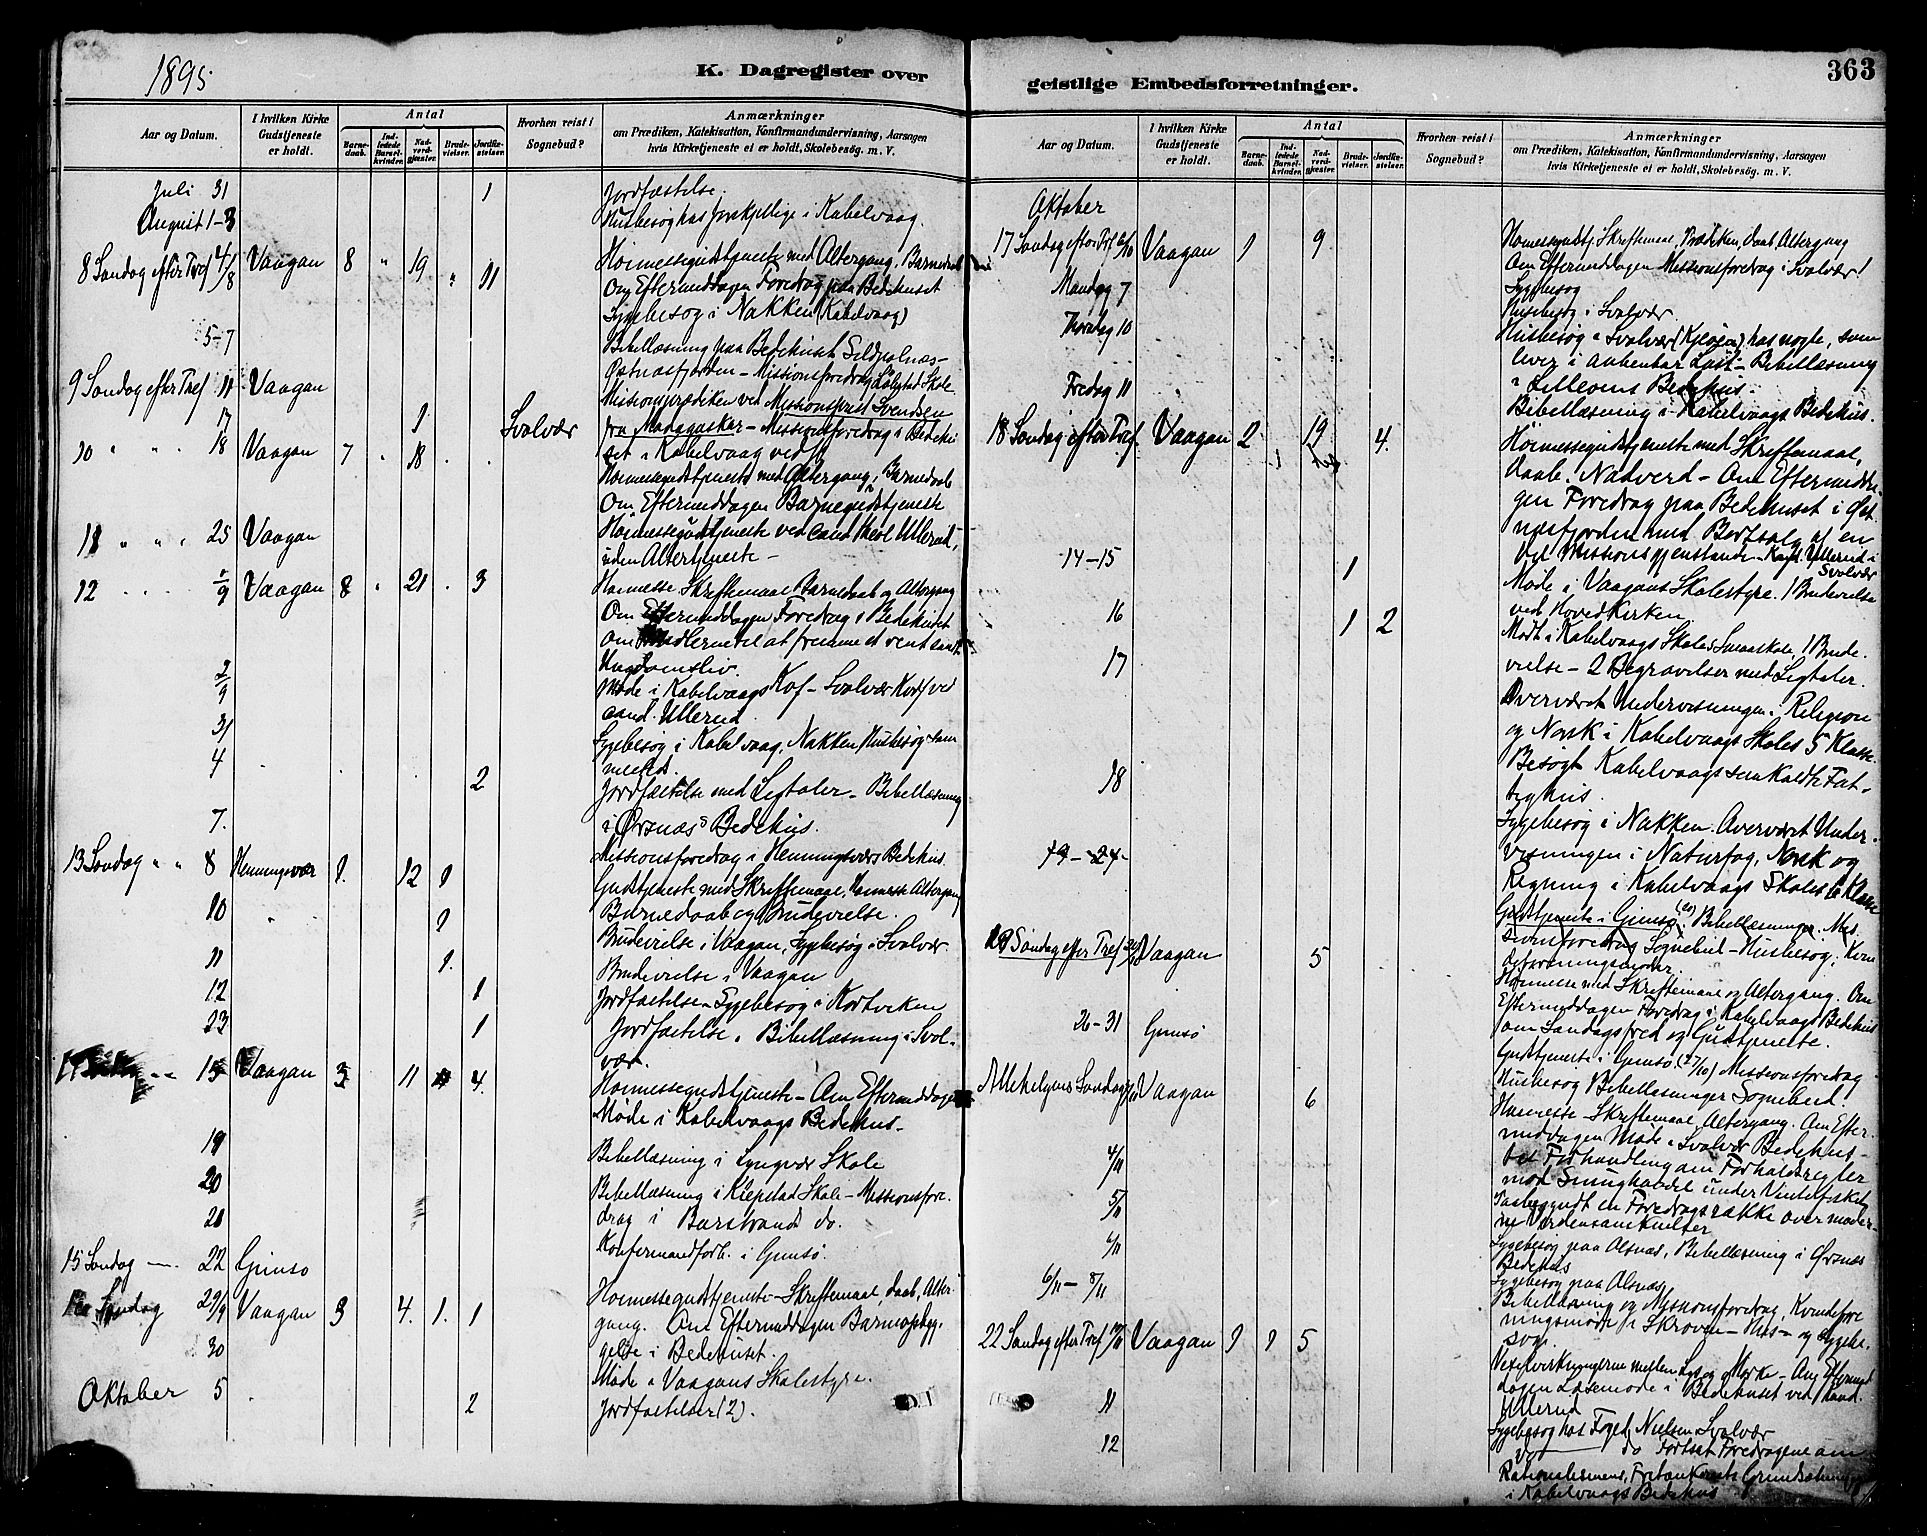 1895
K. Dagregister over
Aar og Datum.
I hvilken Kirke Gudstjeneste er holdt.
Antal
Barnedaab.
Indledede Barselkvinder.
Nadverdgjæster.
Brudevielser.
Jordfæstelser.
Hvorhen reist i Sognebud?
Anmærkninger
om Prædiken, Katekisation, Konfirmandundervisning, Aarsagen
hvis Kirketjeneste ei er holdt, Skolebesøg. m. V.
Juli 31 1 Jordfæstelse.
August 1-3 Husbesøg hos forskjellige i Kabelvaag.
8 Søndag efter Tref 4/8 Vaagan 8 " 19 " 11 Høimessegudstjeneste med Altergang, Barnedaab
Om Eftermiddagen Foredrag paa Bedehuset
Sygebesøg i Nakken (Kabelvaag)
5-7 Bibellæsning paa Bedehuset Sildpolnæs-
Østnæsfjorden - Missionsforedrag Skole
9 Søndag efter Tref 11 Vaagan Missionsprædiken ved Missionsprest Svendsen
17 1 Svolvær fra Madagaskar - Missionsforedrag i Bedehu
10 " " " 18 Vaagan 7 . 18 . . set i Kabelvaag ved
Høimessegudstjeneste med Altergang, Barnedaab
Om Eftermiddagen Barnegudstjeneste
11 " " " 25 Vaagan Høimessegudstjeneste ved cand theol Ullerud,
uden Altertjeneste -
12 1/9 Vaagan 8 " 21 . 3 Høimesse Skriftemaal Barnedaab og Altergang
Om Eftermiddagen Foredrag i Bedehuset
om Midlerne til at fremme et rent sandt
Ungdomsliv.
2/9 Møde i Kabelvaags Kof - Svolvær Kof ved
cand. Ullerud.
3/ Sygebesøg i Kabelvaag, Nakken, Husbesøg sam
mested.
4 2 Jordfæstelse med Ligtaler - Bibellæsning
7. i Ørsnæs Bedehus.
Missionsforedrag i Henningsvær Bedehus.
13 Søndag " " 8 Henningsvær 1. 12 1 Gudstjeneste med Skriftemaal, Høimesse Altergang
Barnedaab og Brudevielse.
10 " 1 Brudevielse i Vaagan, Sygebesøg i Svolvær
11 1. Brudevielse i Vaagan
12 1 Jordfæstelse Sygebesøg i Kortviken
1 Jordfæstelse. Bibellæsning i Svol-
vær.
15 Vaagan 3 11 4. Høimessegudstjeneste - Om Eftermiddagen
Møde i Kabelvaags Bedehus -
19 Bibellæsning i Lyngvær Skole
20 Bibellæsning i Klepstad Skole - Missionsfore-
21 drag i Barstrand do.
Konfirmandforb. i Gimsø.
15 Søndag 22 Gimsø
Søndag 29/9 Vaagan 3 4. 1. 1 Høimessegudstjeneste - Skriftemaal, Daab, Alter-
gang. Om Eftermiddagen Barneopbyg-
30 gelse i Bedehuset.
Møde i Vaagans Skolestyre.
Oktober 5 2 Jordfæstelser (2).
geistlige Embedsforretninger.
363
Aar og Datum.
I hvilken Kirke Gudstjeneste er holdt.
Antal
Barnedaab.
Indledede Barselkvinder.
Nadverdgjæster.
Brudevielser.
Jordfæstelser.
Hvorhen reist i Sognebud?
Anmærkninger
om Prædiken, Katekisation, Konfirmandundervisning, Aarsagen
hvis Kirketjeneste ei er holdt, Skolebesøg. m. V.
Oktober
17 Søndag efter Tref 6/10 Vaagan 1 9 Høimessegudstj. Skriftemaal, Prædiken, Daab, Altergang
Om Eftermiddagen Missionsforedrag i Svolvær!
Mandag 7 Sygebesøg
Husbesøg i Svolvær
Thorsdag 10 Husbesøg i Svolvær hos nogle, som
lever i aabenbar Last - Bibellæsning
Fredag 11 i Bedehus.
Bibellæsning i Kabelvaags Bedehus.
18 Søndag efter Tref. Vaagan 2 19 4. Høimessegudstjeneste med Skriftemaal,
Daab. Nadverd - Om Eftermidda-
gen Foredrag paa Bedehuset i Øst
næsfjorden med Bortsalg af en
14-15 1 Del Missionsgjenstande - Ullerud i
Svolvær
Møde i Vaagans Skolestyre. 1 Brudevielse
16 1 2 ved Hovedkirken.
Mødt i Kabelvaags Skoles Smaaskole, 1 Brude-
17 vielse - 2 Begravelser med Ligtaler.
Overværet Undervisningen i Religion
og Norsk i Kabelvaags Skoles 5 Klasse.
18 Besøgt Kabelvaags saakaldte Fat-
tighus.
Sygebesøg i Nakken. Overværet Under-
19-24- visningen i Naturfag, Norsk og
Regning i Kabelvaags Skoles 6 Klasse
Gudstjeneste i Gimsø (20) Bibellæsninger. Mis-
Søndag efter Tref Vaagan 5 sionsforedrag Sognebud - Husbesøg, Kvin
deforeningsmøder.
Høimesse med Skriftemaal og Altergang. Om
26-31 Gimsø Eftermiddagen Foredrag i Kabelvaags Bedehus
om Søndagsfred og Gudstjeneste.
Gudstjeneste i Gimsø (27/10) Missionsforedrag
Allehelgens Søndag Vaagan 6 Husbesøg Bibellæsninger Sognebud.
Høimesse Skriftemaal, Altergang. Om Efter-
middagen Møde i Svolvær Bedehus -
4/11 Forhandling om Forholdsregler
mod Smughandel under Vinterfisket
5/11 Paabegyndt en Foredragsrække over moder-
ne Verdensanskuelser
6/11 Sygebesøg paa Olsnæs, Bibellæsning i Ørsnæs
Bedehus
6/11 - 8/11 Sygebesøg paa Olsnæs
Bibellæsning og Missionsforedrag, Kvindefore
ningsmøde i Skroven - Hus- og Sygebe-
22 Søndag efter Tref 10/11 Vaagan 1 1 5 søg.
Vexelvirkningerne mellem Lys og Mørke - Om Eftermid
dagen Læsemøde i Bedehuset ved Cand.
11 Ullerud
Sygebesøg hos Foged Nielsen Svolvær
12 do Fortsat Foredragene om
Rationalismens, Fritænkernes Grundsætninger
i Kabelvaags Bedehus